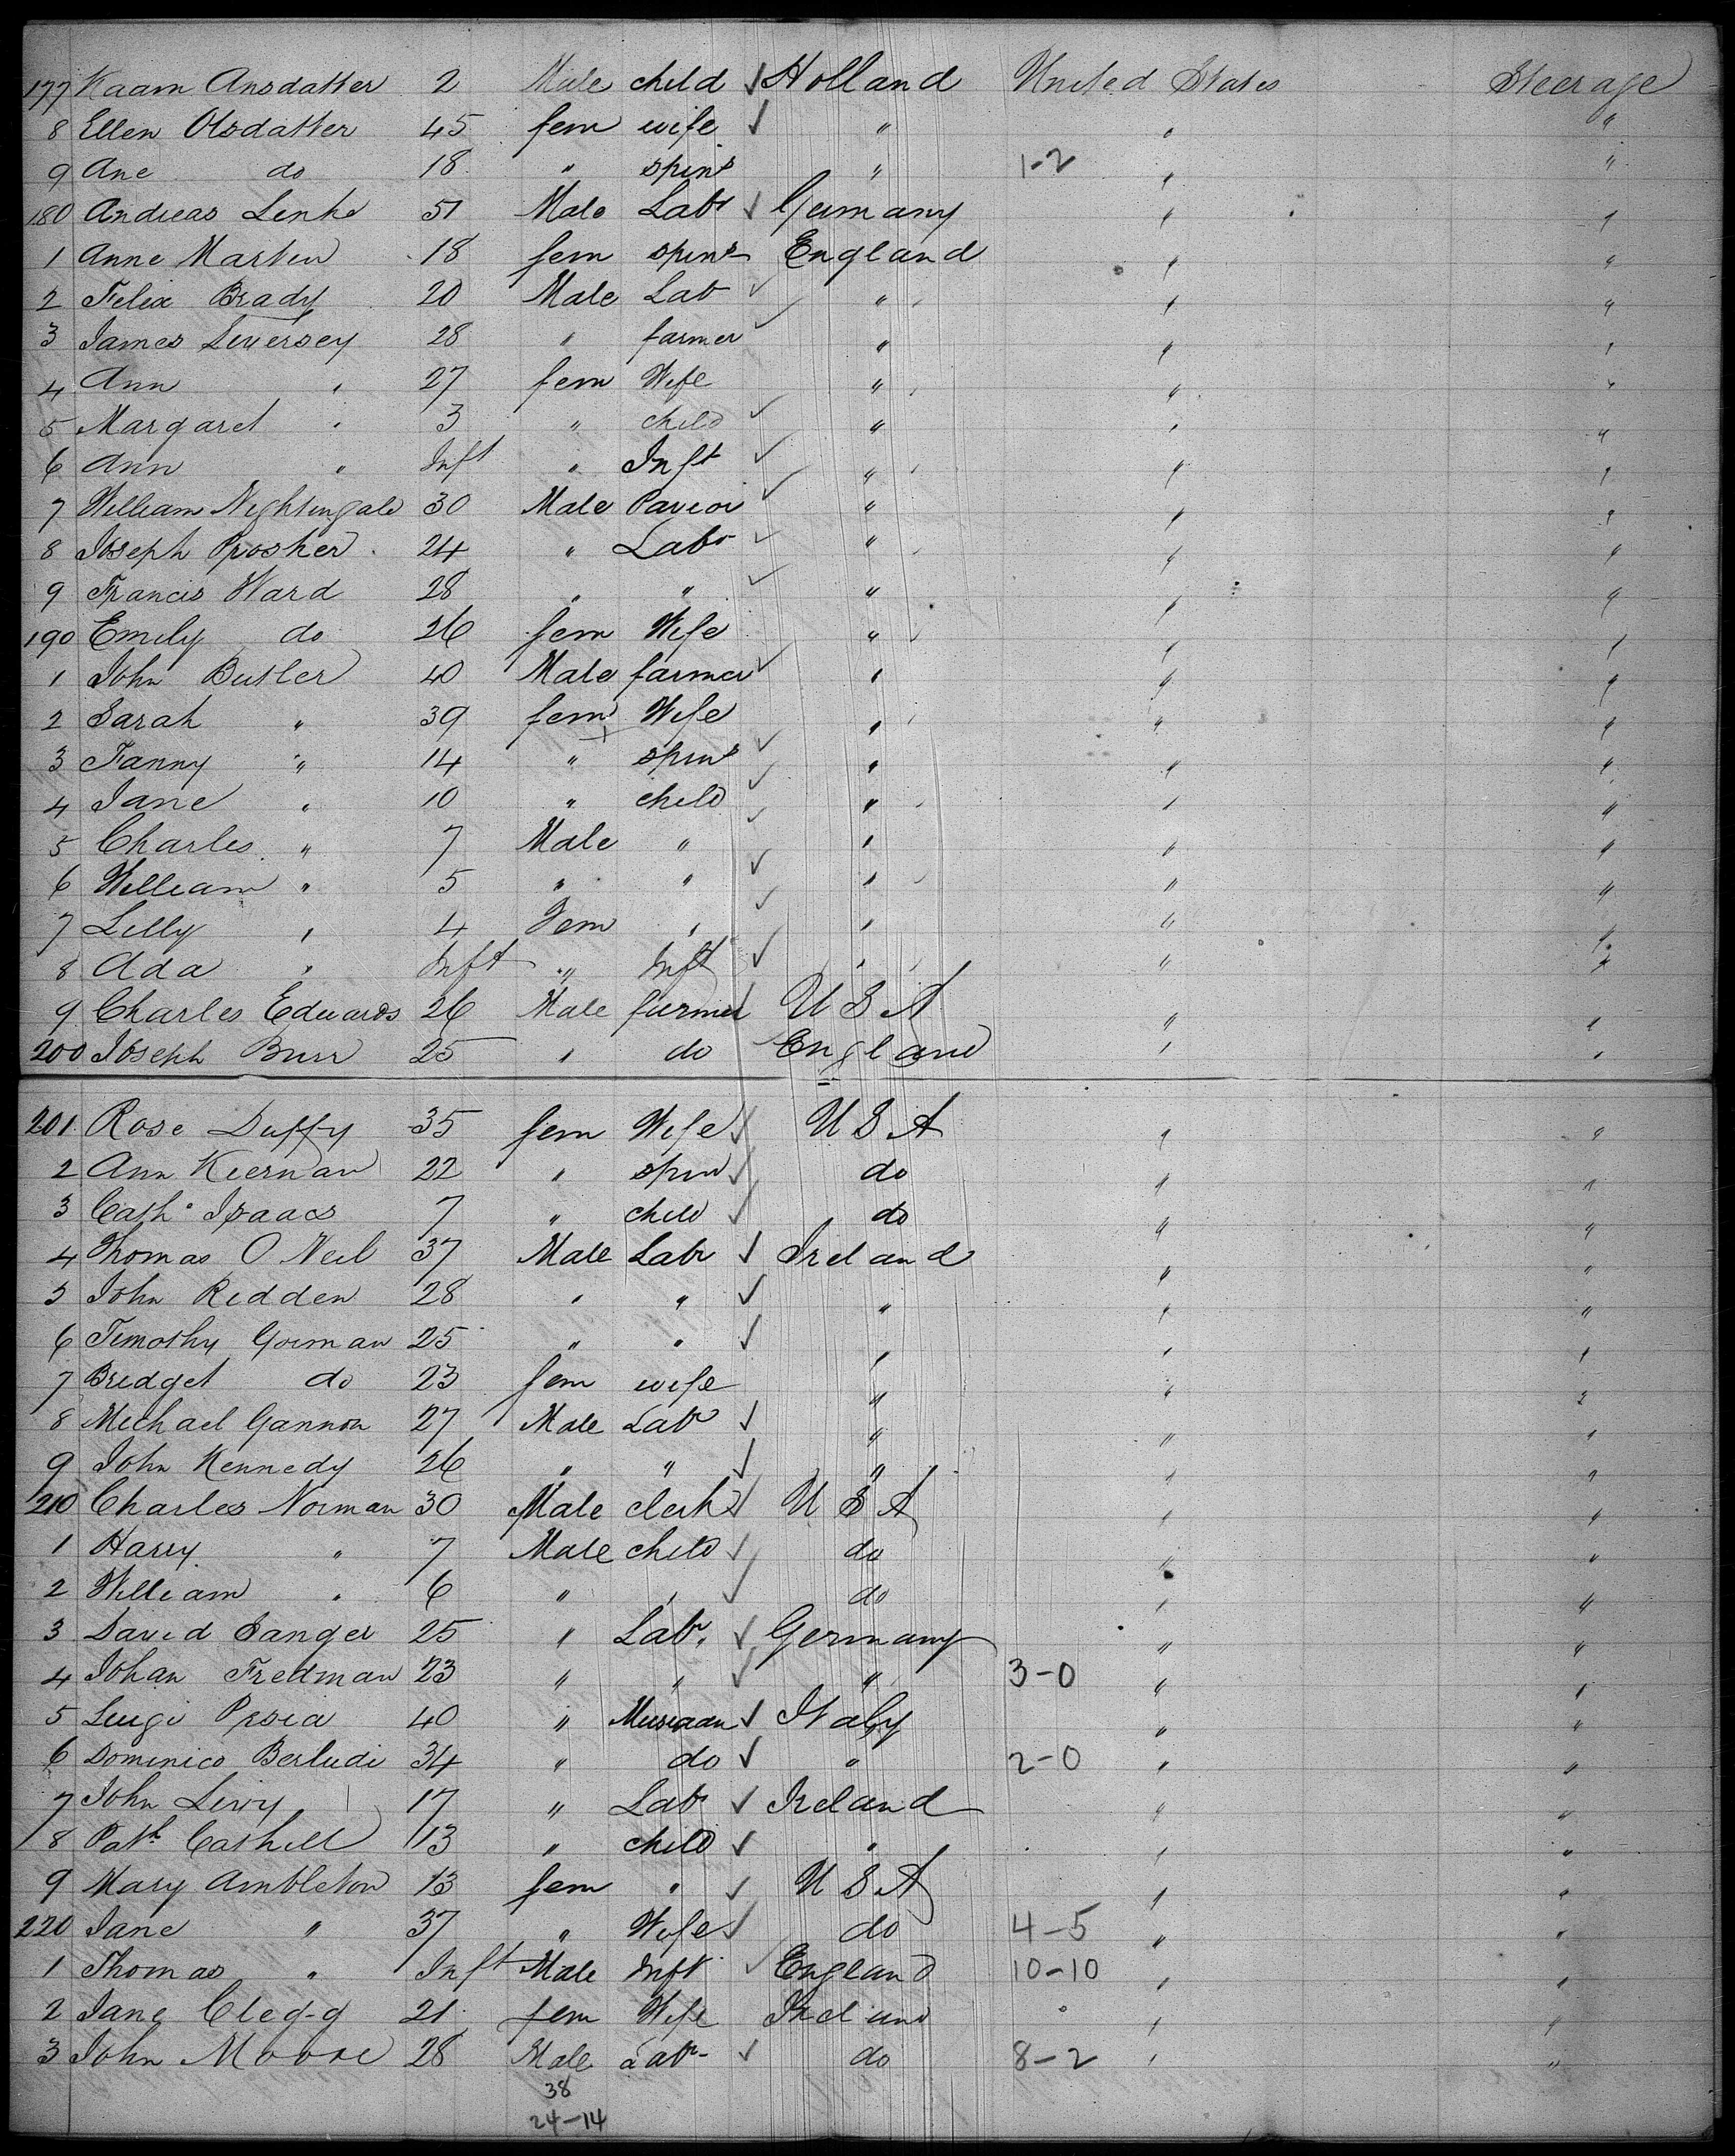 177 Kaam Ansdatter 2 Male child ✓ Holland United States Steerage
8 Ellen Olsdatter 45 fem wife ✓ " " "
9 Ane do 18 " spins " 1-2 " "
180 Andreas Lenke 51 Male Labr ✓ Germany " "
1 Anne Marten 18 fem spins England " "
2 Felix Brady 20 Male Lab ✓ " " "
3 James Liversey 28 " farmer ✓ " " "
4 Ann " 27 fem Wife " " "
5 Margaret " 3 " child ✓ " " "
6 Ann " Inft " Inft ✓ " " "
7 William Nightingale 30 Male Pavior ✓ " " "
8 Joseph Prosher 24 " Labr ✓ " " "
9 Francis Ward 28 " " ✓ " " "
190 Emily do 26 fem Wife " " "
1 John Butler 40 Male farmer ✓ " " "
2 Sarah " 39 fem Wife " " "
3 Fanny " 14 " spins ✓ " " "
4 Jane " 10 " child ✓ " " "
5 Charles " 7 Male " ✓ " " "
6 William " 5 " " ✓ " " "
7 Lilly " 4 Fem " ✓ " " "
8 Ada " Inft " Inft ✓ " " "
9 Charles Edwards 26 Male farmer ✓ U S A " "
200 Joseph Burr 25 " do England " "
201 Rose Duffy 35 fem Wife ✓ U S A " "
2 Ann Kiernan 22 " spin ✓ do " "
3 Cath. Isaacs 7 " child ✓ do " "
4 Thomas O Neil 37 Male Labr ✓ Ireland " "
5 John Redden 28 " " ✓ " " "
6 Timothy Gorman 25 " " ✓ " " "
7 Bridget do 23 fem wife " " "
8 Michael Gannon 27 Male Labr ✓ " " "
9 John Kennedy 26 " " ✓ " " "
210 Charles Norman 30 Male clerk ✓ U S A " "
1 Harry " 7 Male child ✓ do " "
2 William " 6 " " ✓ do " "
3 David Sanger 25 " Labr. ✓ Germany " "
4 Johan Fredman 23 " " ✓ " 3-0 " "
5 Luigi 40 " Musician ✓ Italy " "
6 Dominico Berludi 34 " do ✓ " 2-0 " "
7 John Livry 17 " Labr ✓ Ireland " "
8 Patk Cashill 13 " child ✓ " " "
9 Mary Ambleton 13 fem " ✓ U S A " "
220 Jane " 37 " Wife ✓ do 4-5 " "
1 Thomas " Inft Male Inft ✓ England 10-10 " "
2 Jane Clegg 21 fem Wife Ireland " "
3 John Moore 28 Male Labr ✓ do 8-2 " "
38
24-14